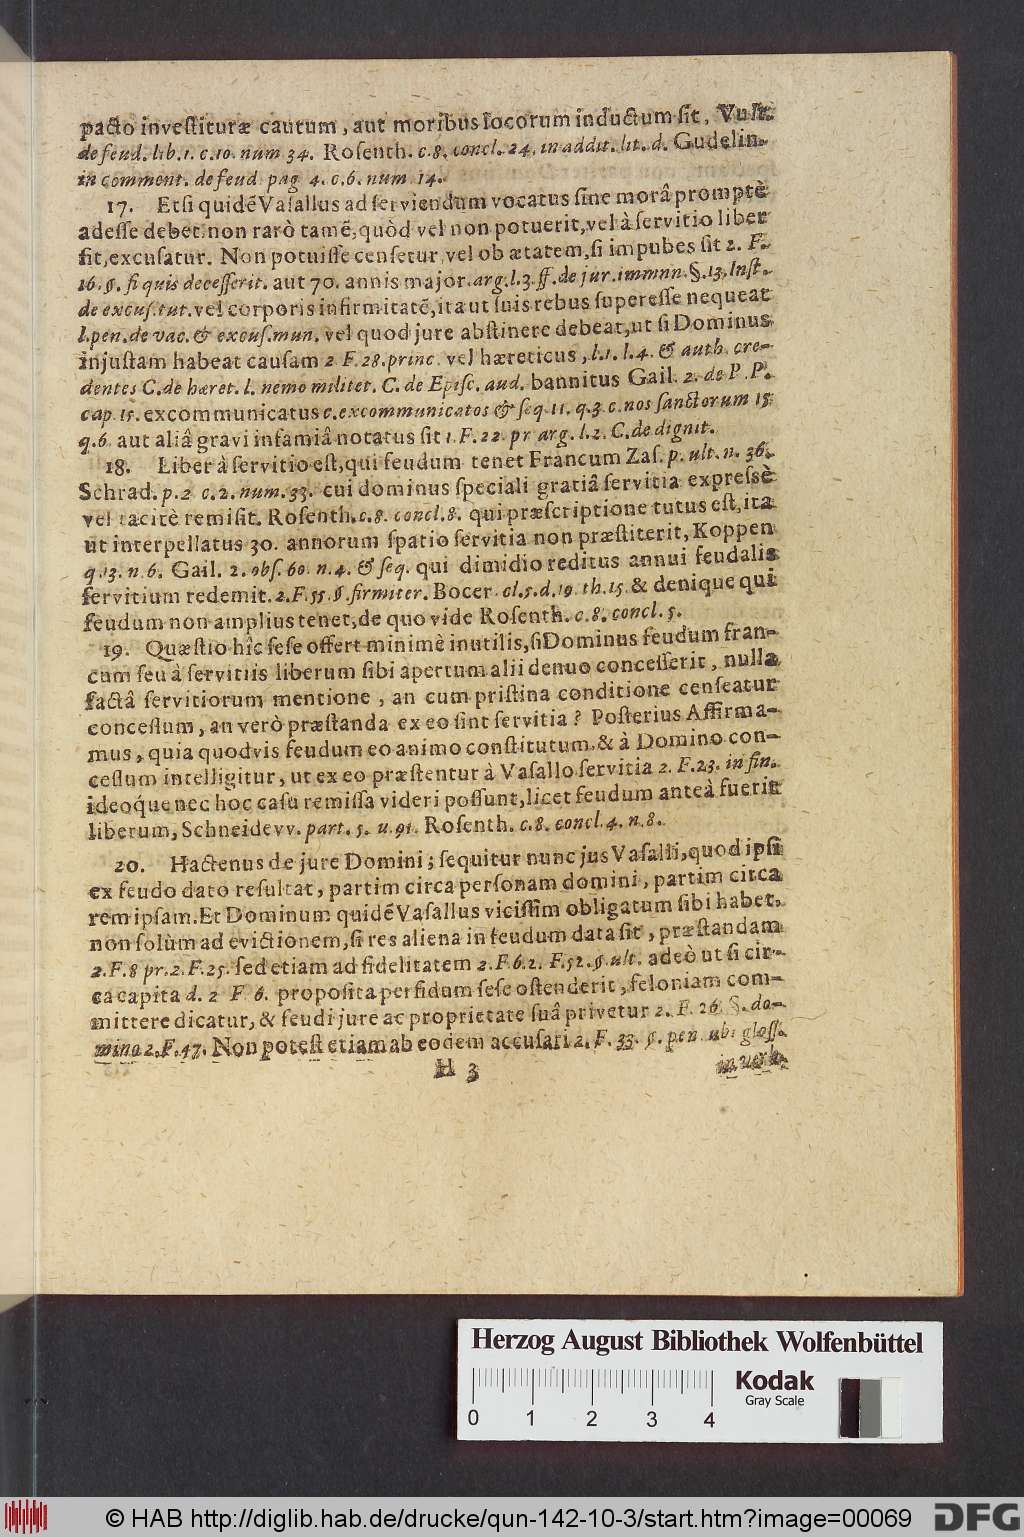 pacto investituræ cautum, aut moribus locorum inductum sit, Vult.
de feud. lib. 1. c. 10. num 34. Rosenth. c. 8. concl. 24. in addit. lit. d. Gudelin.
in comment. de feud pag 4. c. 6. num 14.
17. Etsi quidẽ Vasallus ad serviendum vocatus sine morâ promptè
adesse debet: non rarò tamẽ, quòd vel non potuerit, vel à servitio liber
sit, excusatur. Non potuisse censetur vel ob ætatem, si impubes sit 2. F.
16. §. si quis decesserit. aut 70. annis major. arg. l. 3. ff. de jur. immnn. §. 13. Inst.
de excus. tut. vel corporis infirmitatẽ, ita ut suis rebus superesse nequeat
l. pen. de vac. & excus. mun. vel quod jure abstinere debeat, ut si Dominus
injustam habeat causam 2. F. 28. princ. vel hæreticus, l. 1. l. 4. & auth. cre-
dentes C. de hæret. l. nemo militet. C. de Episc. aud. bannitus Gail. 2. de P. P.
cap. 15. excommunicatus c. excommunicatos & seq. 11. q. 3. c. nos sanctorum 15
q. 6. aut aliâ gravi infamiâ notatus sit 1. F. 22. pr arg. l. 2. C. de dignit.
18. Liber à servitio est, qui feudum tenet Francum Zas. p. ult. n. 36.
Schrad. p. 2 c. 2. num. 33. cui dominus speciali gratiâ servitia expressè
vel tacitè remisit. Rosenth. c. 8. concl. 8. qui præscriptione tutus est, ita
ut interpellatus 30. annorum spatio servitia non præstiterit, Koppen
q. 13. n. 6. Gail. 2. obs. 60. n. 4. & seq. qui dimidio reditus annui feudalis
servitium redemit. 2. F. 55. §. firmiter. Bocer. cl. 5. d. 19. th. 15. & denique qui
feudum non amplius tenet, de quo vide Rosenth. c. 8. concl. 5.
19. Quæstio hîc sese offert minimè inutilis, si Dominus feudum fran-
cum seu à servitiis liberum sibi apertum alii denuo concesserit, nulla
factâ servitiorum mentione, an cum pristina conditione censeatur
concessum, an verò præstanda ex eo sint servitia? Posterius Affirma-
mus, quia quodvis feudum eo animo constitutum & à Domino con-
cessum intelligitur, ut ex eo præstentur à Vasallo servitia 2. F. 23. in fin.
ideoq́ue nec hoc casu remissa videri possunt, licet feudum anteà fuerit
liberum, Schneidevv. part. 5. u. 91. Rosenth. c. 8. concl. 4. n. 8.
20. Hactenus de jure Domini; sequitur nunc jus Vasalli, quod ipsi
ex feudo dato resultat, partim circa personam domini, partim circa
rem ipsam. Et Dominum quidẽ Vasallus vicissim obligatum sibi habet,
non solùm ad evictionem, si res aliena in feudum data sit, præstandam
2. F. 8 pr. 2. F. 25. sed etiam ad fidelitatem 2. F. 6. 2. F. 52. §. ult. adeò ut si cir-
ca capita d. 2 F. 6. proposita perfidum sese ostenderit, feloniam com-
mittere dicatur, & feudi jure ac proprietate suâ privetur 2. F. 26. §. do-
mino 2. F. 47. Non potest etiam ab eodem accusari 2. F. 33. §. pen ubi gloss.
H 3 in verb.
Herzog August Bibliothek Wolfenbüttel
Kodak
Gray Scale
0 1 2 3 4
© HAB http://diglib.hab.de/drucke/qun-142-10-3/start.htm?image=00069
DFG